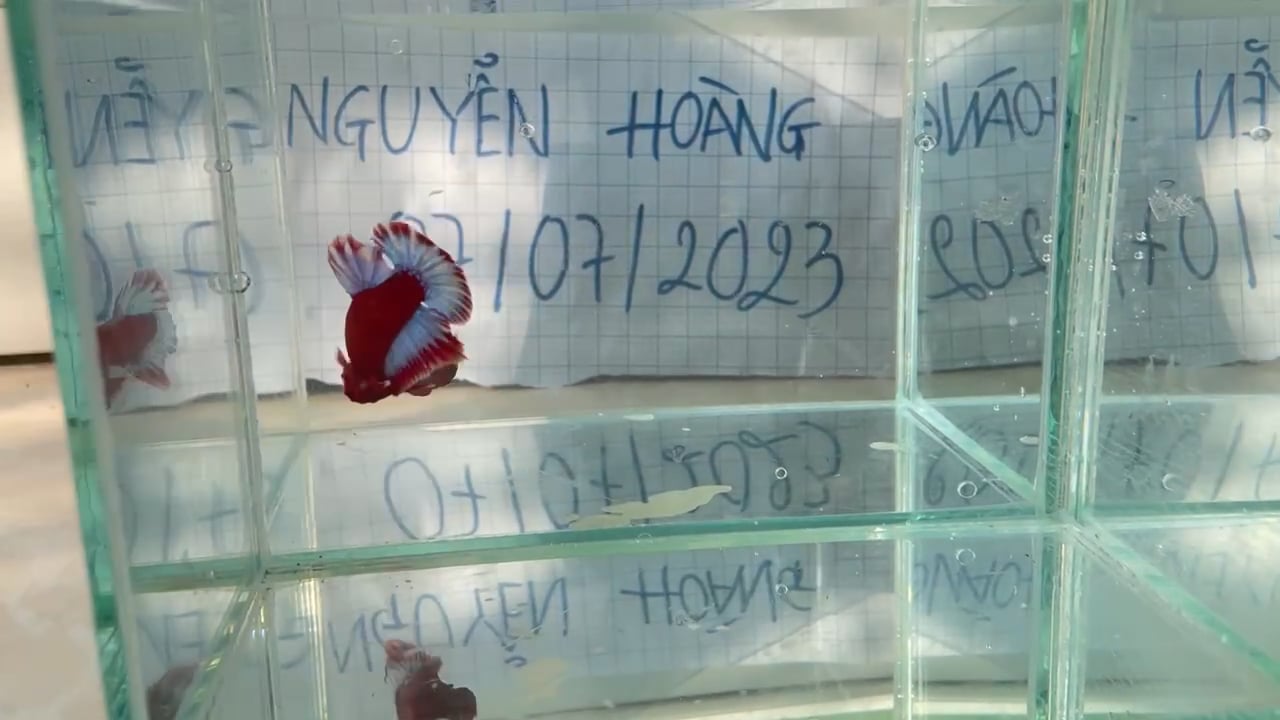 NGUYỄN HOÀNG
07/07/2023